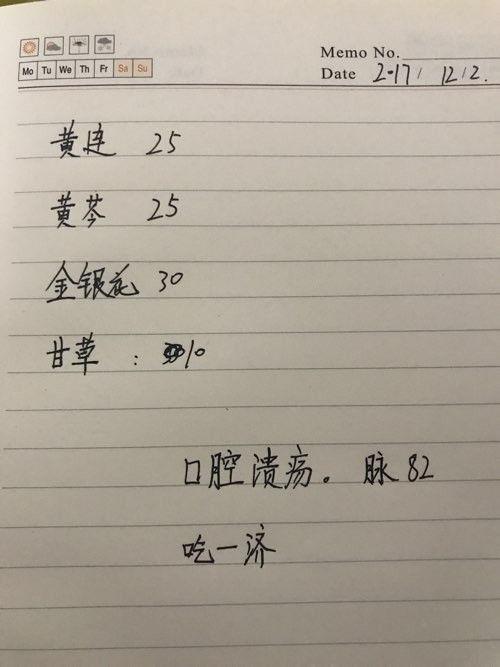 Memo No.
Mo Tu We Th Fr Sa Su
Date 2017/ 12/2.
黄连 25
黄芩 25
金银花 30
甘草 : 10
口腔溃疡。 脉 82
吃一济